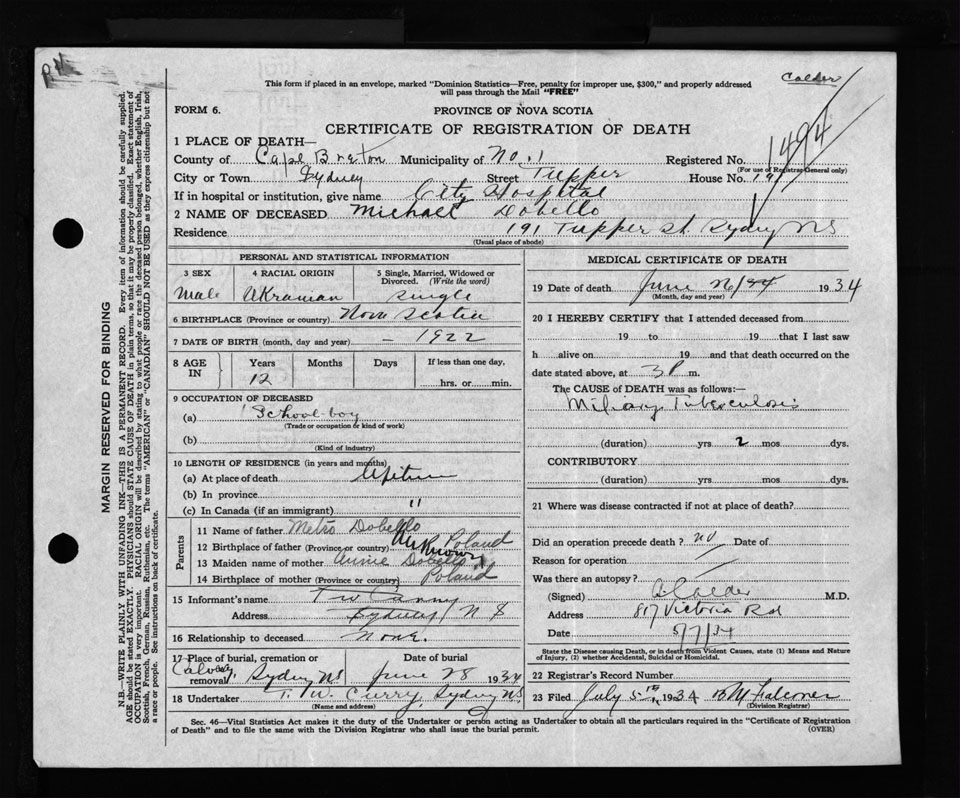 Calder
This form if placed in an envelope, marked "Dominion Statistics—Free, penalty for improper use, $300," and properly addressed
will pass through the Mail "FREE"
FORM 6.
PROVINCE OF NOVA SCOTIA
CERTIFICATE OF REGISTRATION OF DEATH
1494
1 PLACE OF DEATH—
County of Cape Breton Municipality of No. 1 Registered No.
(For use of Registrar General only)
City or Town Sydney Street Tupper House No. 191
If in hospital or institution, give name City Hospital
2 NAME OF DECEASED Michael Dobello
Residence 191 Tupper St. Sydney NS
(Usual place of abode)
PERSONAL AND STATISTICAL INFORMATION
3 SEX 4 RACIAL ORIGIN 5 Single, Married, Widowed or Divorced. (Write the word)
Male Ukranian Single
6 BIRTHPLACE (Province or country) Nova Scotia
7 DATE OF BIRTH (month, day and year) — 1922
8 AGE IN Years Months Days If less than one day,
12 hrs. or min.
9 OCCUPATION OF DECEASED
(a) School boy
(Trade or occupation or kind of work)
(b)
(Kind of industry)
10 LENGTH OF RESIDENCE (in years and months)
(a) At place of death Lifetime
(b) In province
(c) In Canada (if an immigrant) "
Parents
11 Name of father Metro Dobello
12 Birthplace of father (Province or country) Poland
Unknown
13 Maiden name of mother Annie Dobello
14 Birthplace of mother (Province or country) Poland
15 Informant's name T W
Address Sydney N S
16 Relationship to deceased None.
17 Place of burial, cremation or removal Date of burial
Sydney NS June 28 1934
18 Undertaker T. W. Curry, Sydney NS
(Name and address)
MEDICAL CERTIFICATE OF DEATH
19 Date of death June 26 1934
(Month, day and year)
20 I HEREBY CERTIFY that I attended deceased from
19 to 19 that I last saw
h alive on 19 and that death occurred on the
date stated above, at 3 P m.
The CAUSE OF DEATH was as follows:—
Miliary Tuberculosis
(duration) yrs 2 mos. dys.
CONTRIBUTORY
(duration) yrs. mos. dys.
21 Where was disease contracted if not at place of death?
Did an operation precede death? no Date of
Reason for operation
Was there an autopsy?
(Signed) A Calder M.D.
Address 817 Victoria Rd
Date 5/7/34
State the Disease causing Death, or in death from Violent Causes, state (1) Means and Nature
of Injury, (2) whether Accidental, Suicidal or Homicidal.
22 Registrar's Record Number
23 Filed July 5th 1934 B M Falconer
(Division Registrar)
Sec. 46—Vital Statistics Act makes it the duty of the Undertaker or person acting as Undertaker to obtain all the particulars required in the "Certificate of Registration
of Death" and to file the same with the Division Registrar who shall issue the burial permit.
(OVER)
MARGIN RESERVED FOR BINDING
N.B.—WRITE PLAINLY WITH UNFADING INK—THIS IS A PERMANENT RECORD. Every item of information should be carefully supplied.
AGE should be stated EXACTLY. PHYSICIANS should STATE CAUSE OF DEATH in plain terms, so that it may be properly classified. Exact statement of
OCCUPATION is very important. RACIAL ORIGIN will be described by stating to what people or race the deceased person belonged, whether English, Irish,
Scottish, French, German, Russian, Ruthenian, etc. The terms "AMERICAN" or "CANADIAN" SHOULD NOT BE USED as they express citizenship but not
a race or people. See instructions on back of certificate.